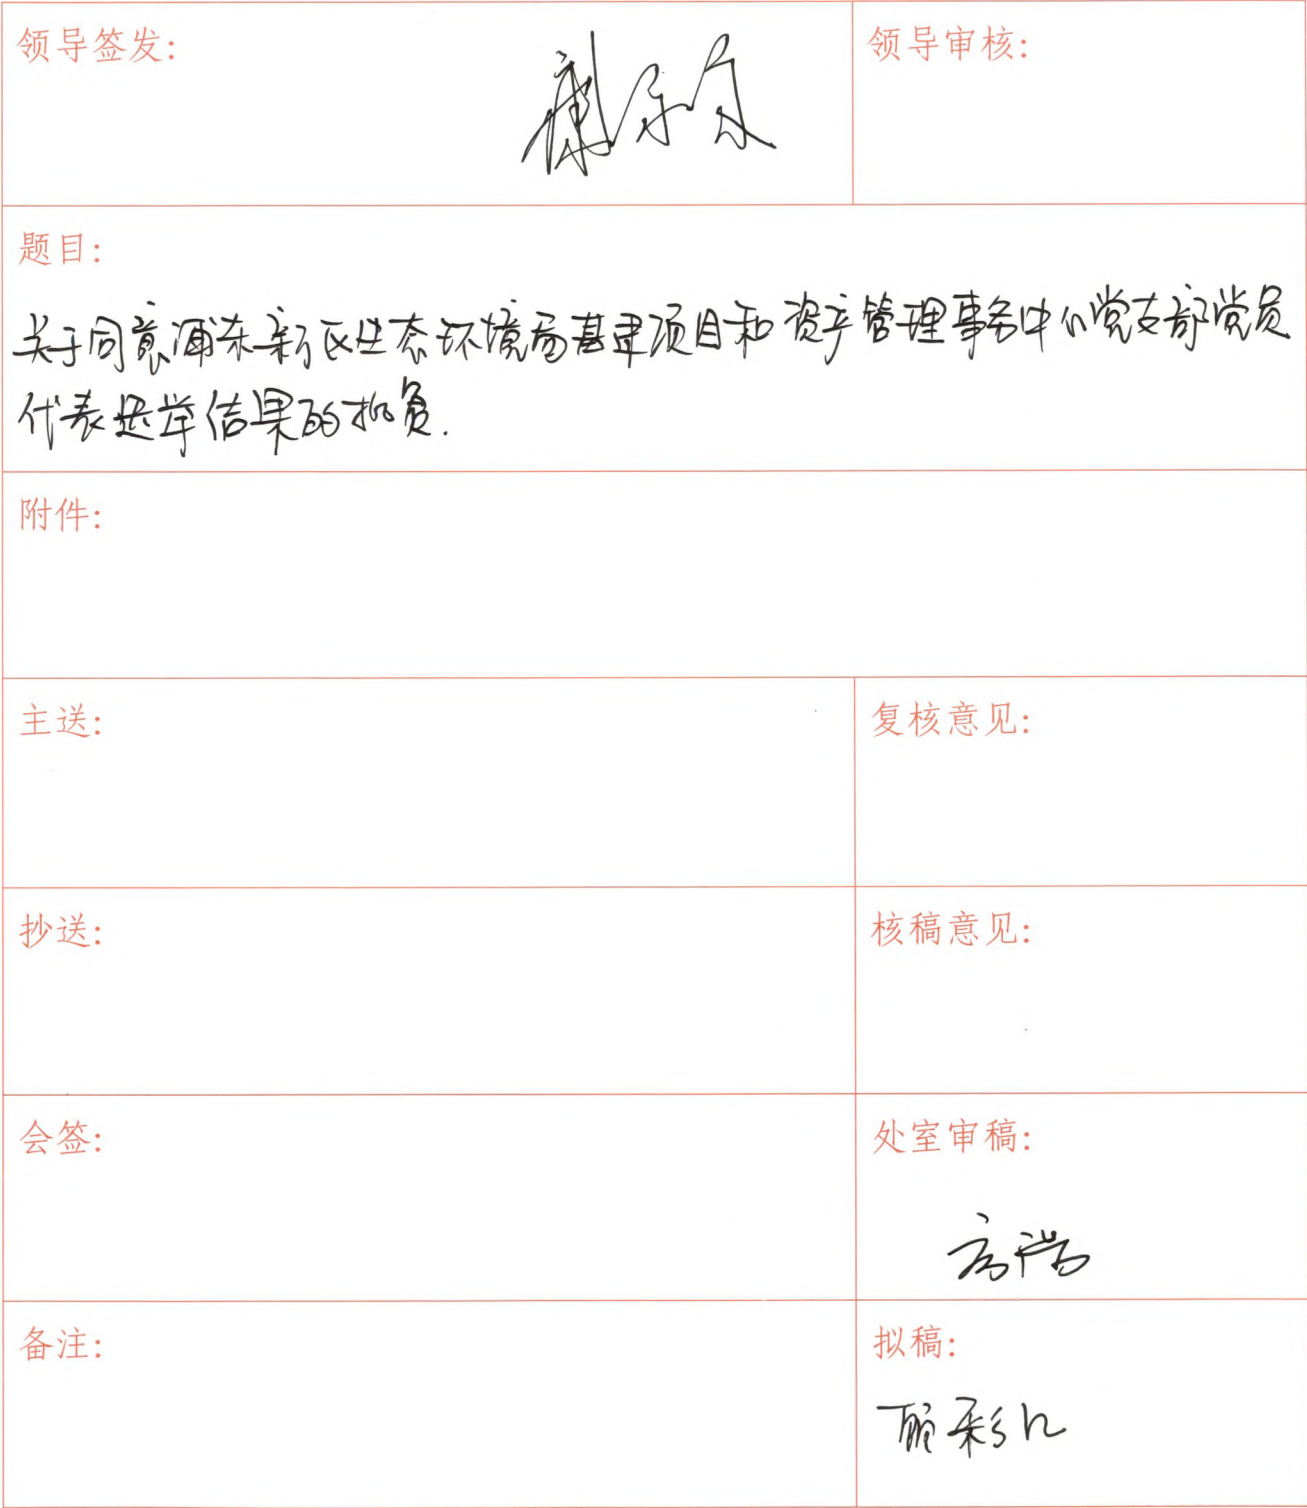 领导签发:
领导审核:
题目:
关于同意浦东新区生态环境局基建项目和资产管理事务中心党支部党员
代表选举结果的批复.
附件:
主送:
复核意见:
抄送:
核稿意见:
会签:
处室审稿:
备注:
拟稿: